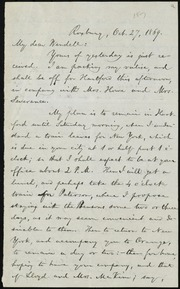 Roxbury, Oct. 27, 1869.
My dear Wendell:
Yours of yesterday is just re-
ceived. I am packing my valise, and
shall be off for Hartford this afternoon,
in company with Mrs. Howe and Mrs.
Severance.
My plan is to remain in Hart-
ford until Friday morning, when I under-
stand a train leaves for New York, which
is due in your city at 1 or half past 1 o'-
clock; so that I shall expect to be at your
office about 2 P.M. Then I will get a
lunch, and perhaps take the 4 o'clock
train for Paterson, where I propose
staying with the two or three
days, as it may seem convenient and de-
sirable to them. Then to return to New
York, and accompany you to Orange,
to remain a day or two; then for
hoping to have your company, and that
of Lloyd and Mrs. McKim; say,